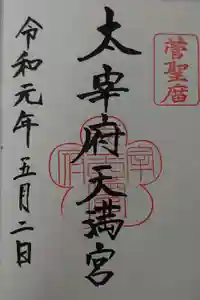 菅聖暦
太宰府天満宮
令和元年五月二日